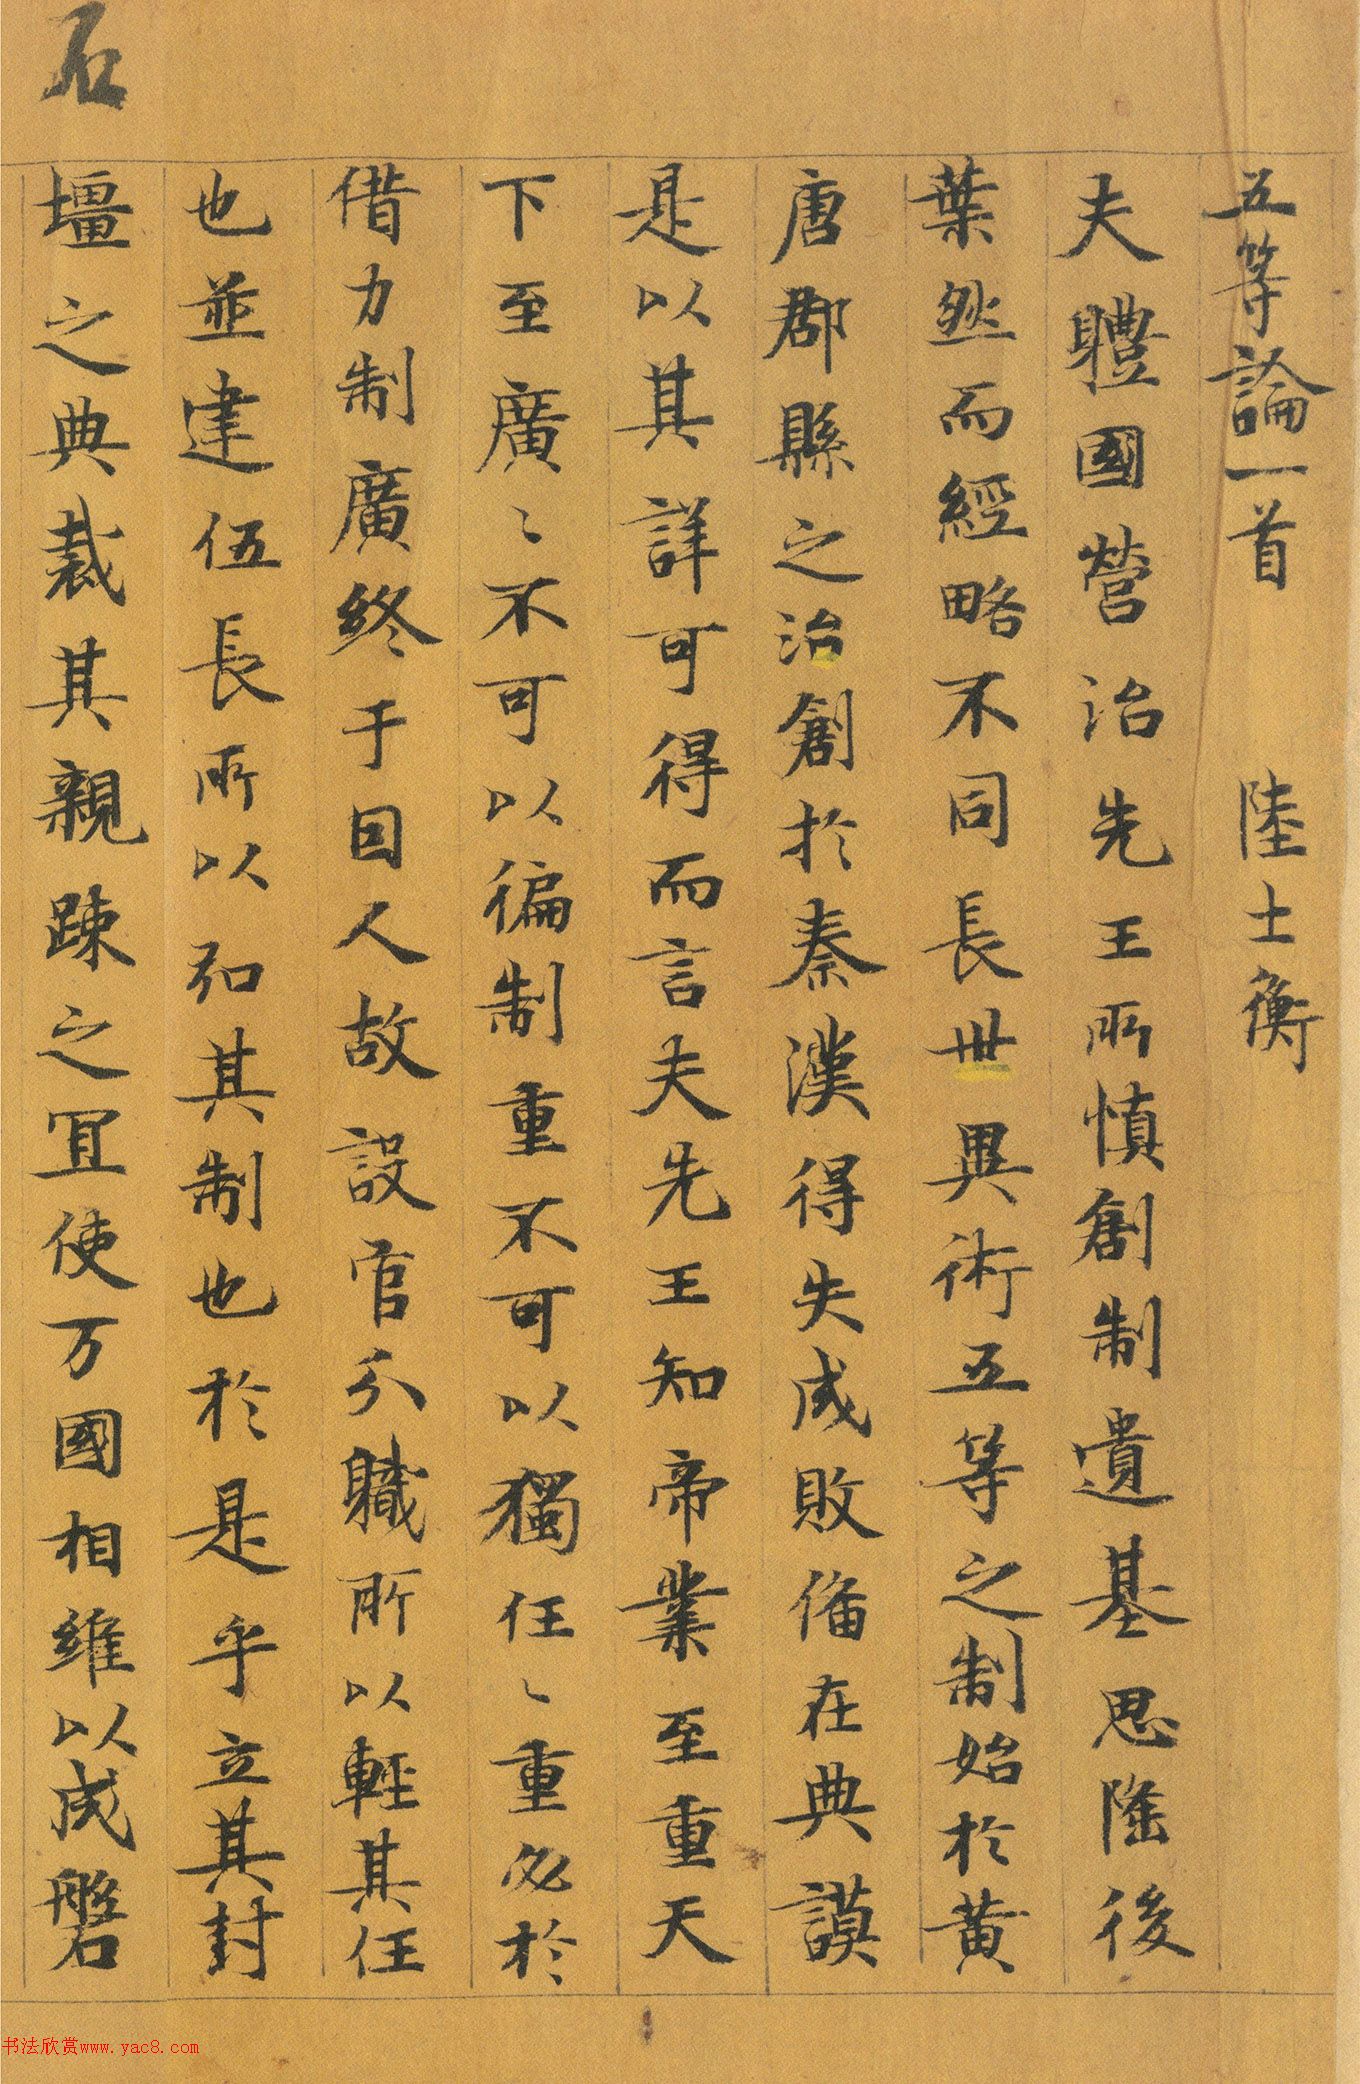 五等論一首 陸士衡
夫軆國營治先王所慎創制遺基思隆後
葉然而經略不同長世異術五等之制始於黄
唐郡縣之治創於秦漢得失成敗俻在典謨
是以其詳可得而言夫先王知帝業至重天
下至廣〻不可以徧制重不可以獨任〻重必於
借力制廣終于因人故設官分軄所以輕其任
也並建伍長所以弘其制也於是乎立其封
壃之典裁其親踈之冝使万國相維以成磐
石
书法欣赏www.yac8.com